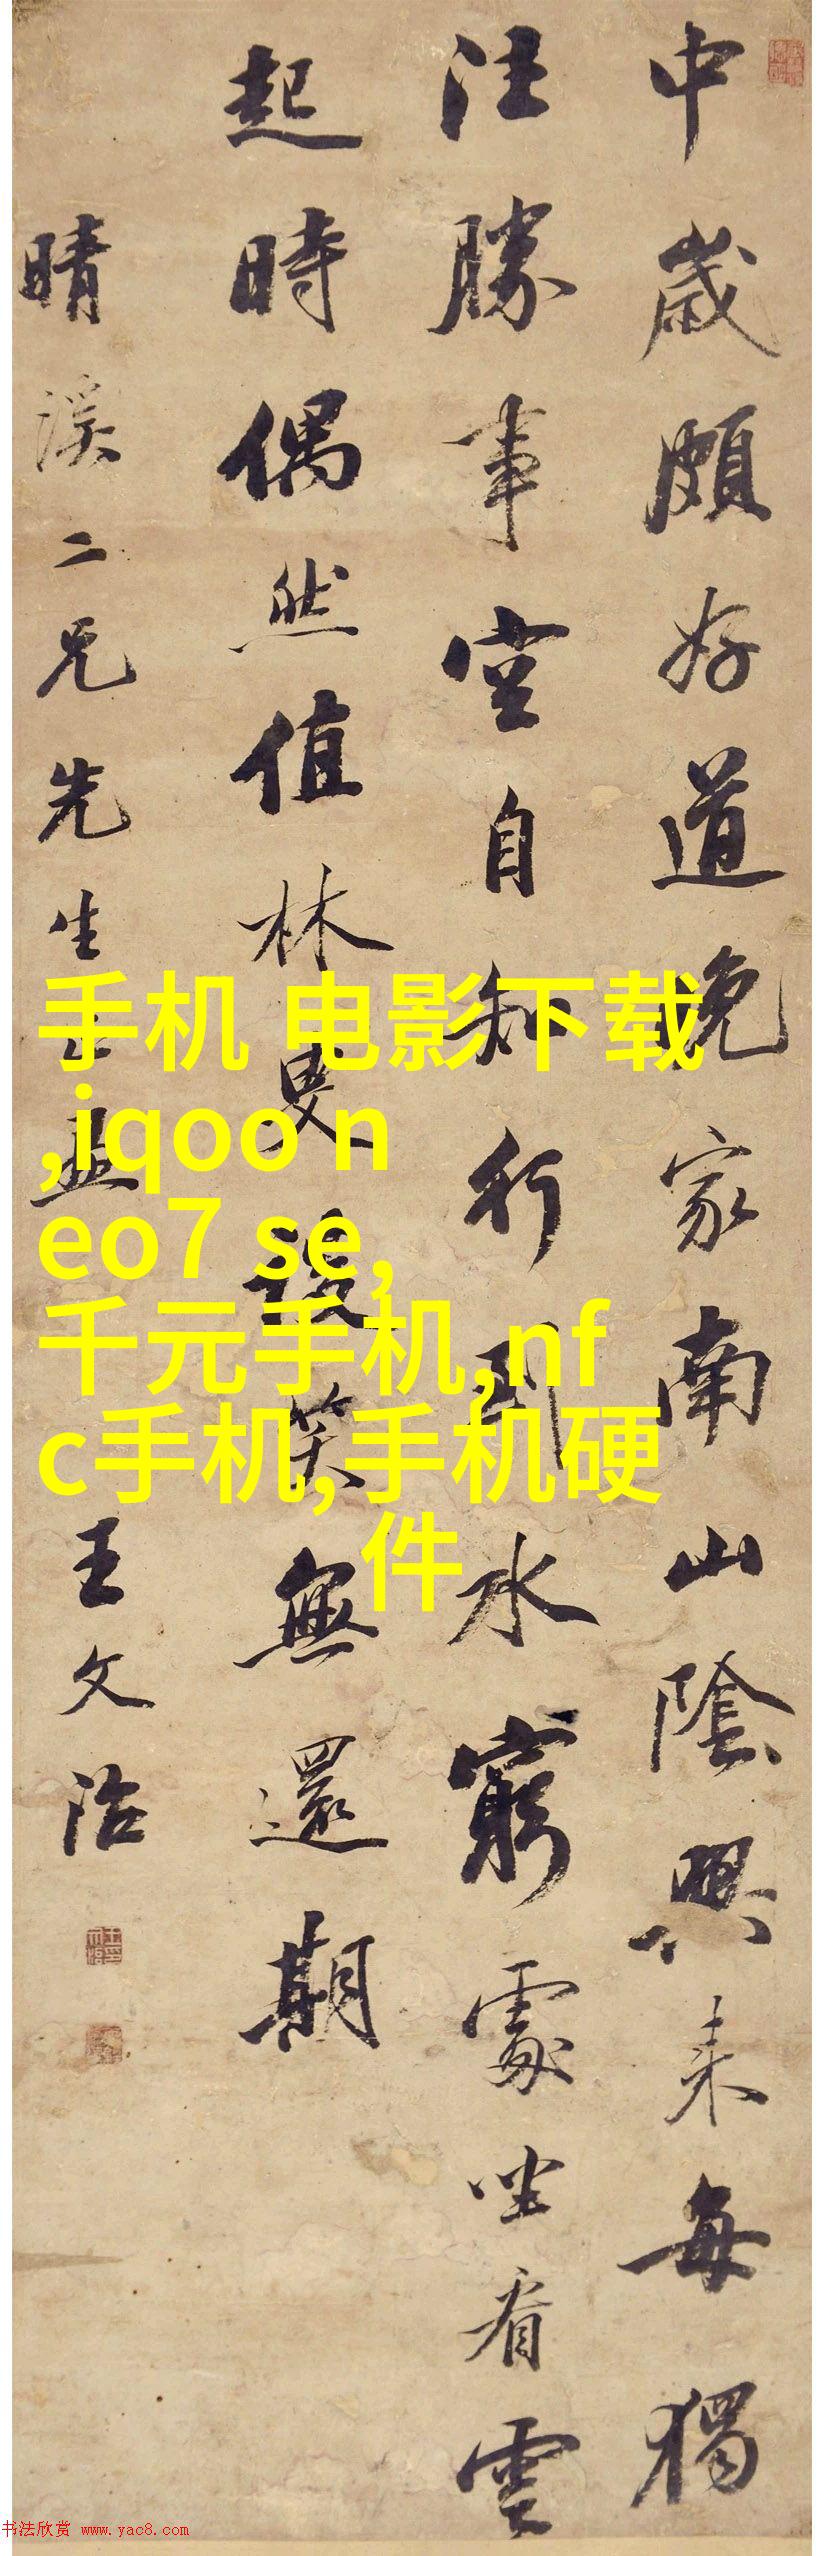 中歲頗好道晚家南山陰興来每獨
往勝事空自知行到水窮處坐看雲
起時偶然值林叟談笑無還期
晴溪二兄先生
王文治
手机 电影下载
,iqoo n
eo7 se,
千元手机,nf
c手机,手机硬
件
书法欣赏 www.yac8.com